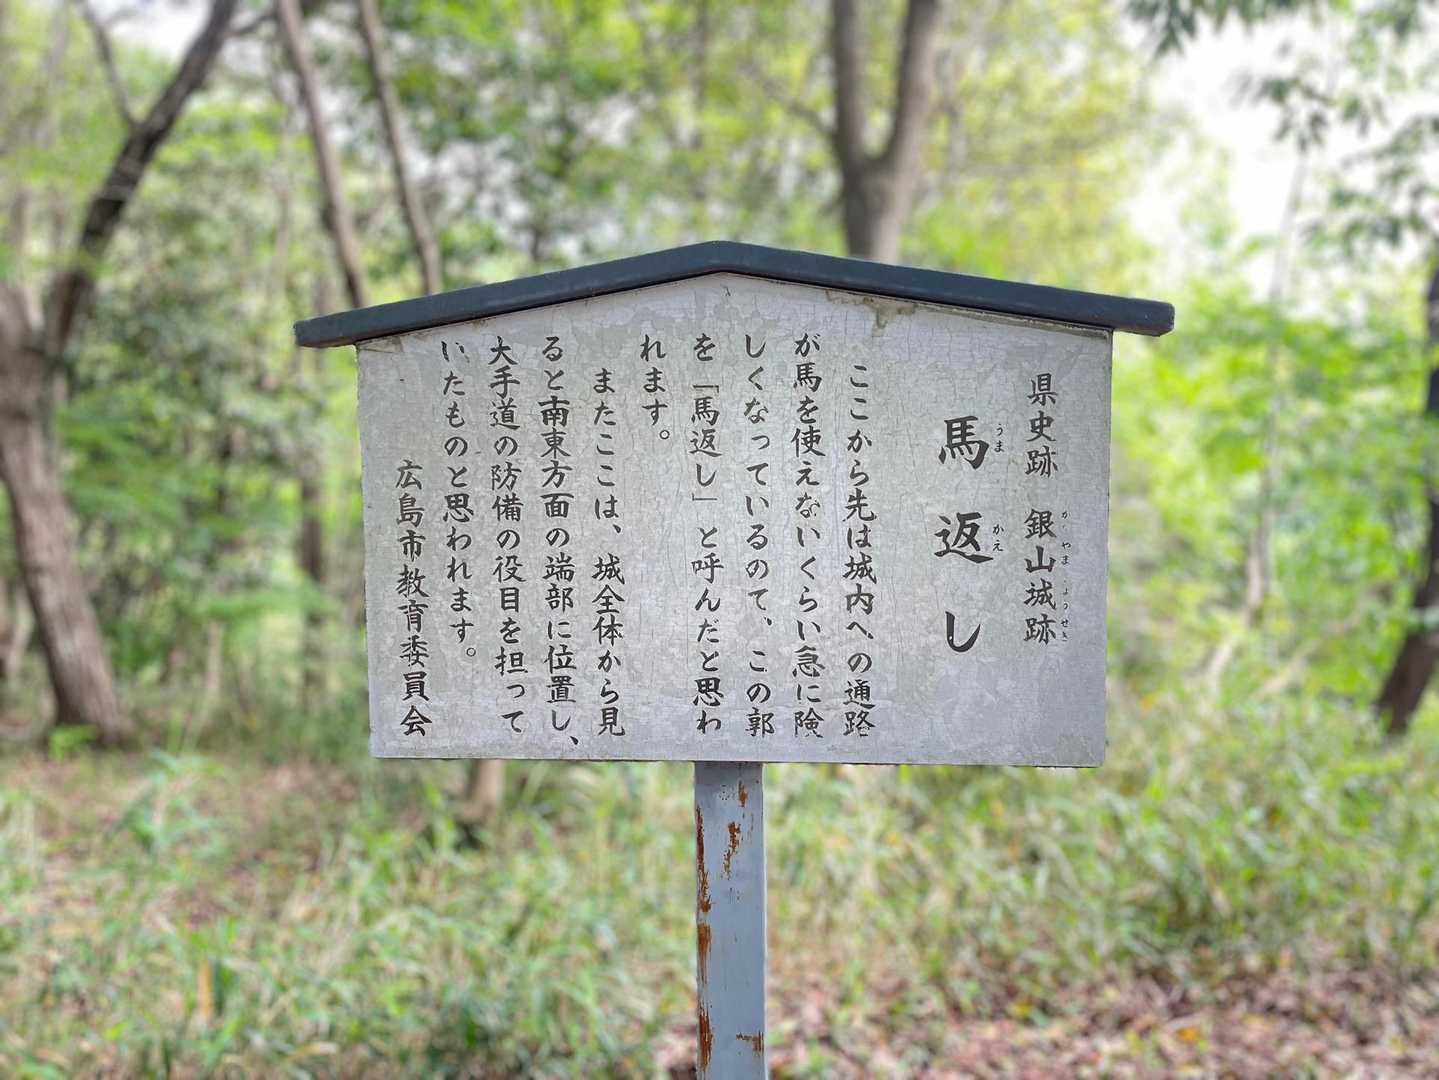 県史跡 銀山城跡
馬返し
うまかえ
ここから先は城内への通路
が馬を使えないくらい急に険
しくなっているので、この郭
を「馬返し」と呼んだと思わ
れます。
またここは、城全体から見
ると南東方面の端部に位置し、
大手道の防備の役目を担って
いたものと思われます。
広島市教育委員会